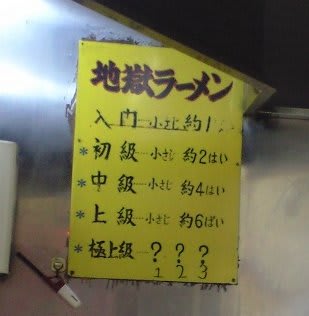 地獄ラーメン
入門…小さじ 約1
*初級…小さじ 約2はい
*中級…小さじ 約4はい
*上級…小さじ 約6ぱい
*極上級…? ? ?
1 2 3